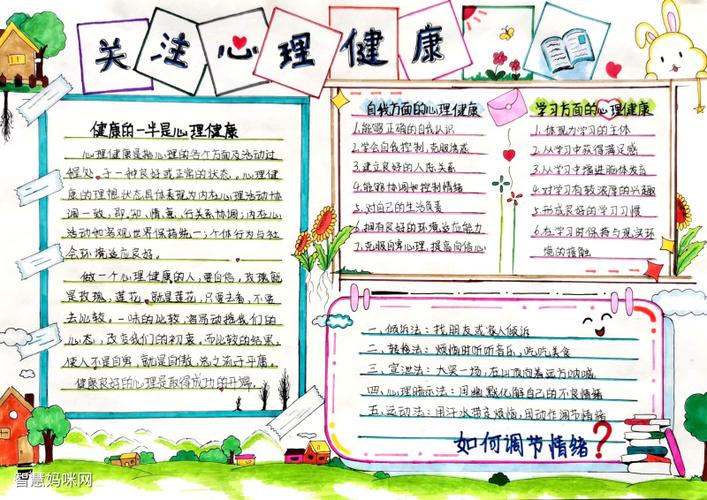 关注心理健康
健康的一半是心理健康
心理健康是指心理的各个方面及活动过
程处于一种良好或正常的状态。心理健
康的理想状态具体表现为内在心理活动协
调一致，即知、情、意、行关系协调；内在心
活动和客观世界保持统一；个体行为与社
会环境适应良好。
做一个心理健康的人，要自信，玫瑰就
是玫瑰，莲花就是莲花，只要去看，不要
去比较。一味的比较，容易动摇我们的
心态，改变我们的初衷，而比较的结果，
使人不是自卑，就是自傲，总之流于平庸。
健康良好的心理是取得成功的开端。
自我方面的心理健康
1.能够正确的自我认识
2.学会自我控制，克服焦虑
3.建立良好的人际关系
4.能够协调和控制情绪
5.对自己的生活负责
6.拥有良好的环境适应能力
7.克服自卑心理，提高自信心
学习方面的心理健康
1.体现为学习的主体
2.从学习中获得满足感
3.从学习中增进脑体发育
4.对学习有较浓厚的兴趣
5.形成良好的学习习惯
6.在学习时保持与现实环
境的接触
一、倾诉法：找朋友或家人倾诉
二、转移法：烦恼时听听音乐，吃吃美食
三、宣泄法：大哭一场，在山顶向着远方呐喊
四、心理暗示法：用幽默化解自己的不良情绪
五、运动法：用汗水带走烦恼，用动作调节情绪
如何调节情绪？
智慧妈咪网